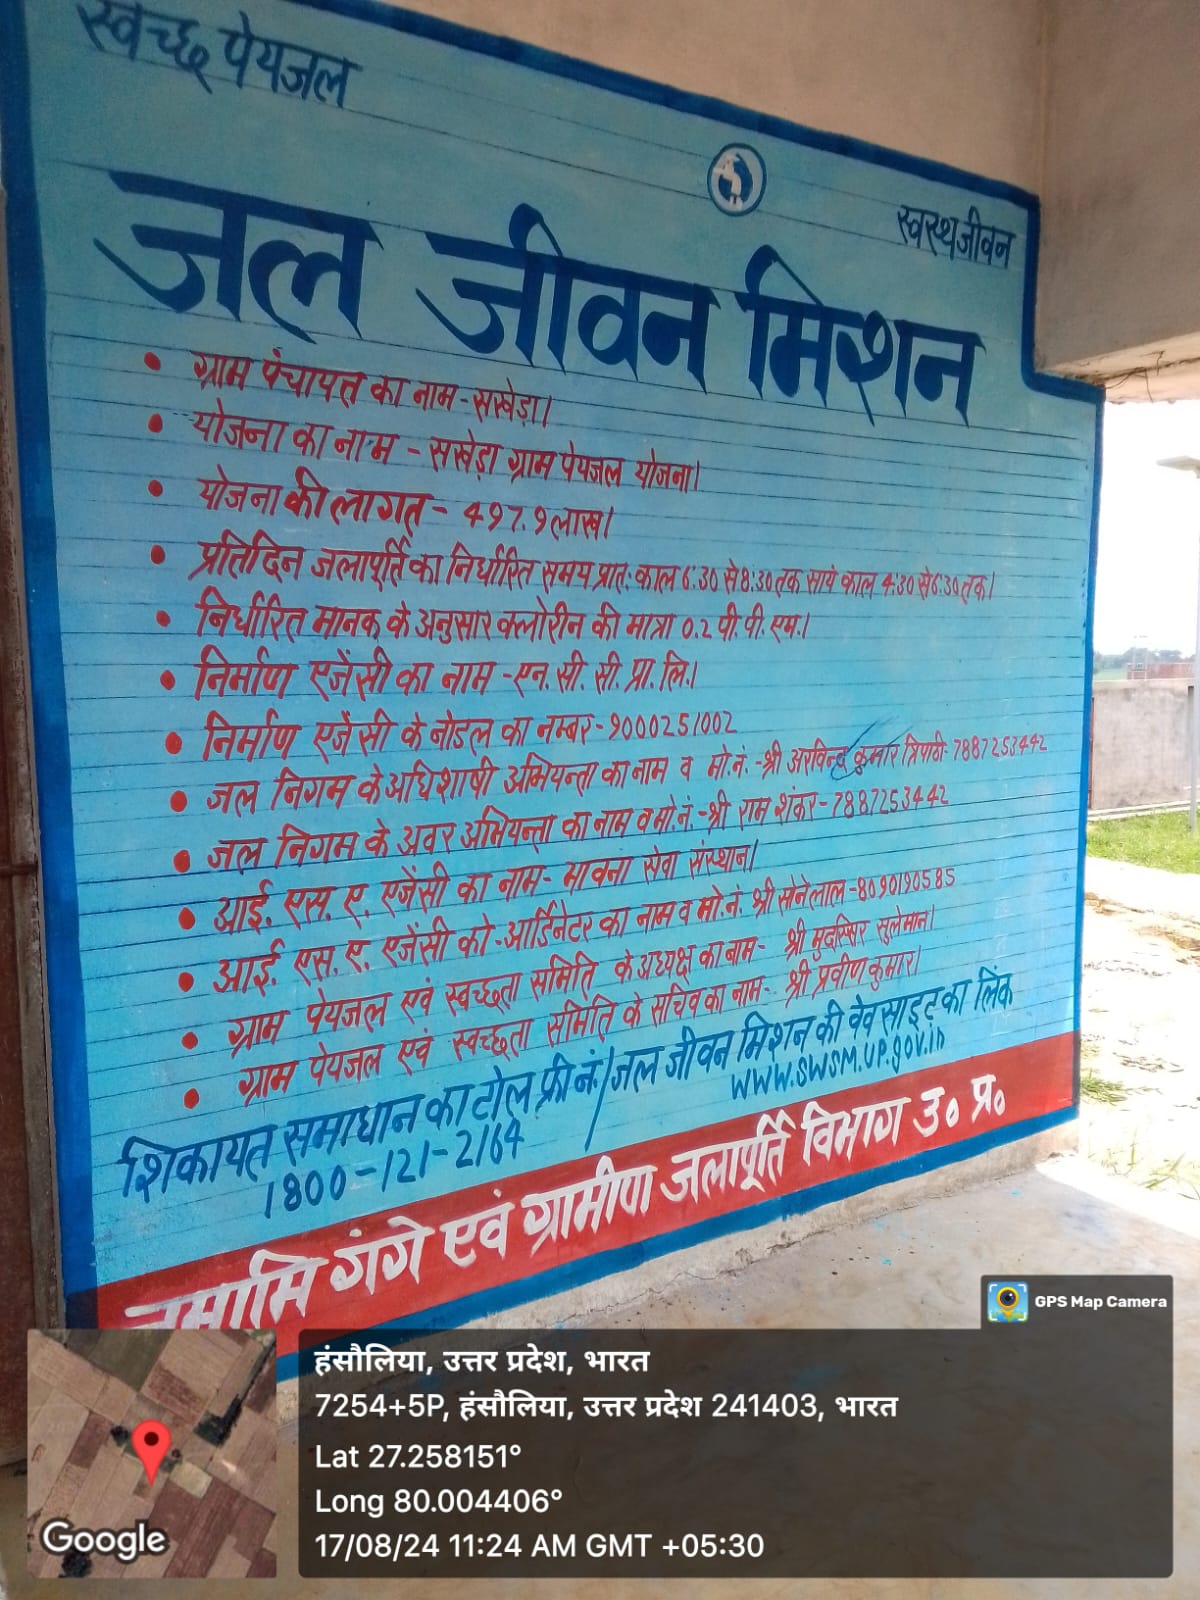 स्वच्छ पेयजल
स्वस्थ जीवन
जल जीवन मिशन
• ग्राम पंचायत का नाम - सखेड़ा।
• योजना का नाम - सखेड़ा ग्राम पेयजल योजना।
• योजना की लागत - 497.9 लाख।
• प्रतिदिन जलापूर्ति का निर्धारित समय प्रात: काल 6:30 से 8:30 तक सायं काल 4:30 से 6:30 तक।
• निर्धारित मानक के अनुसार क्लोरीन की मात्रा 0.2 पी. पी. एम.।
• निर्माण एजेंसी का नाम - एन. सी. सी. प्रा. लि.।
• निर्माण एजेंसी के नोडल का नम्बर - 9000251002
• जल निगम के अधिशाषी अभियन्ता का नाम व मो.नं. - श्री अरविन्द कुमार त्रिपाठी - 7887253442
• जल निगम के अवर अभियन्ता का नाम व मो.नं. - श्री राम शंकर - 7887253442
• आई. एस. ए. एजेंसी का नाम - भावना सेवा संस्थान।
• आई. एस. ए. एजेंसी को-आर्डिनेटर का नाम व मो.नं. श्री सोनेलाल - 8090190585
• ग्राम पेयजल एवं स्वच्छता समिति के अध्यक्ष का नाम - श्री मुदस्सिर सुलेमान।
• ग्राम पेयजल एवं स्वच्छता समिति के सचिव का नाम - श्री प्रवीण कुमार।
शिकायत समाधान का टोल फ्री नं. / जल जीवन मिशन की वेवसाइट का लिंक
1800-121-2164 www.swsm.up.gov.in
नमामि गंगे एवं ग्रामीण जलापूर्ति विभाग उ० प्र०
GPS Map Camera
हंसौलिया, उत्तर प्रदेश, भारत
7254+5P, हंसौलिया, उत्तर प्रदेश 241403, भारत
Lat 27.258151°
Long 80.004406°
17/08/24 11:24 AM GMT +05:30
Google